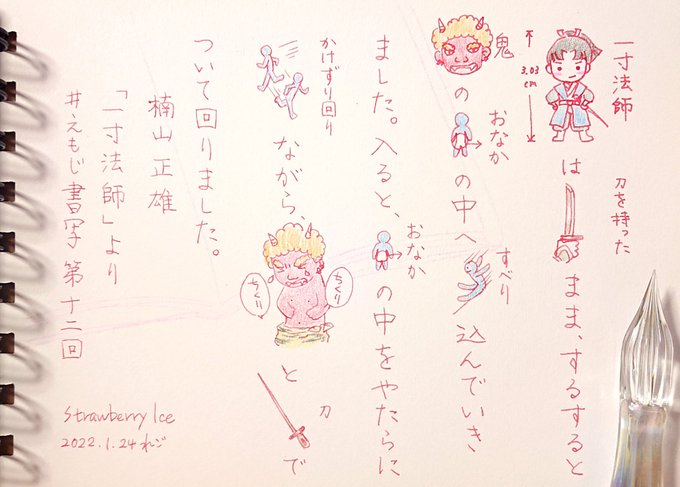 一寸法師
3.03
cm
刀を持った
は
まま、するすると
鬼
の
おなか
の中へ
すべり
込んでいき
ました。入ると、
おなか
の中をやたらに
かけずり回り
ながら、
ちくり
ちくり
と
刀
で
ついて回りました。
楠山正雄
「一寸法師」より
#えもじ書写 第十二回
Strawberry Ice
2022.1.24 れご